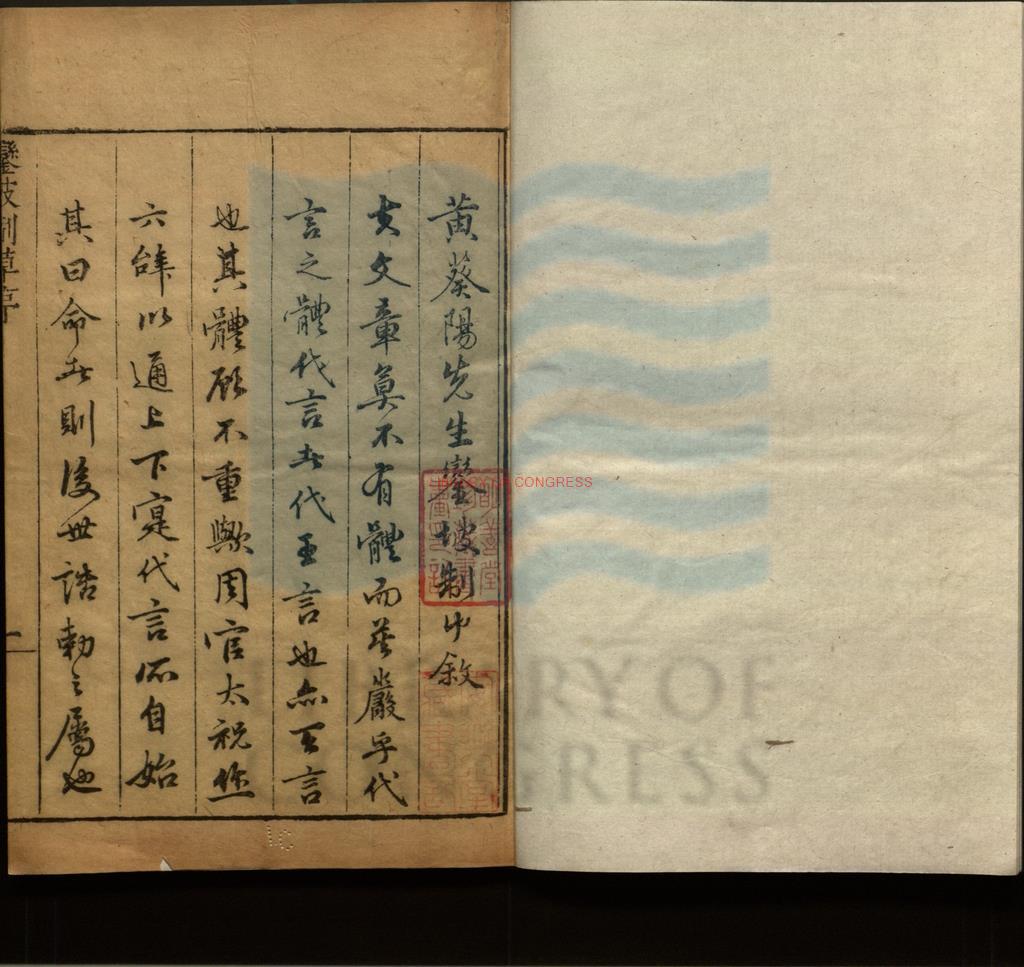 黄葵陽先生鑾坡制艸敘
夫文章莫不有體而莫嚴乎代
言之體代言者代王言也亦王言
也其體顧不重歟周官太祝作
六辞以通上下寔代言所自始
其曰命者則後世誥勅之屬也
鑾坡制草序
一
LIBRARY OF CONGRESS
LIBRARY OF
CONGRESS